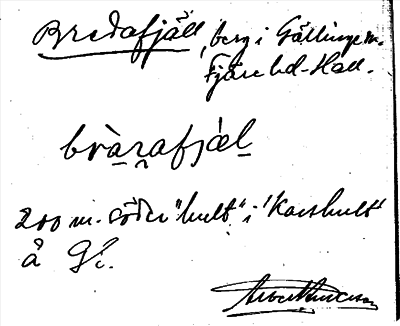 Bredafjäll, berg i Gällinge sn.
Fjäre hd. Hall.
bràrafjæl
200 m. söder "hult" i "Karshult"
å G.